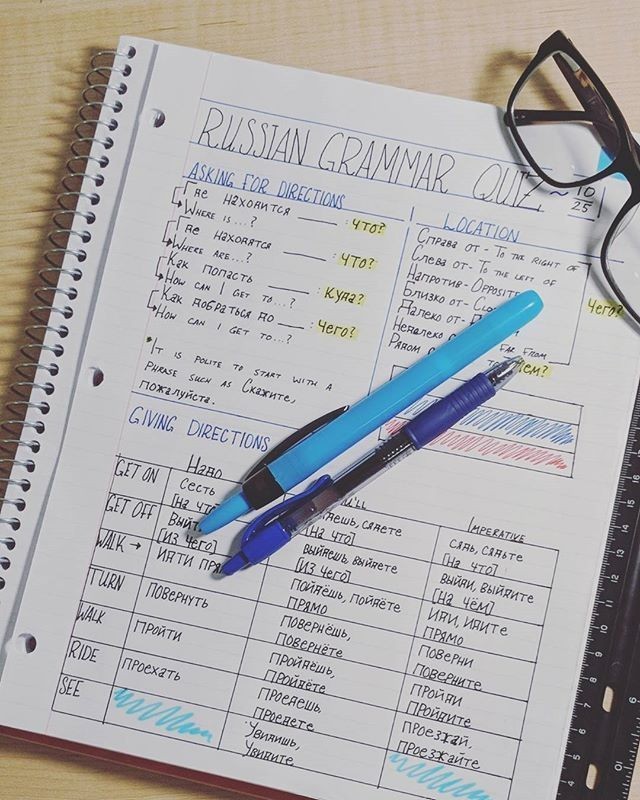 RUSSIAN GRAMMAR QUIZ ~ 10
25
ASKING FOR DIRECTIONS
Где находится ____ : что?
Where is...?
Где находятся ____ : что?
Where are...?
Как попасть ____ : куда?
How can I get to...?
Как добраться до ____ : чего?
How can I get to...?
*It is polite to start with a
phrase such as Скажите,
пожалуйста.
LOCATION
Справа от - To the right of
Слева от - To the left of
Напротив - Opposite
Близко от -
Далеко от -
Недалеко от far from
Рядом
чего?
чем?
GIVING DIRECTIONS
Надо 'll Imperative
GET ON
Сесть
[На что]
сядете
[На что]
Сядь, сядьте
[На что]
GET OFF
[Из чего]
Выйдешь, выйдете
[Из чего]
Выйди, выйдите
[На чём]
WALK →
Идти
Пойдёшь, пойдёте
прямо
Иди, идите
прямо
TURN
Повернуть
Повернёшь,
Повернёте
Поверни
Поверните
WALK
Пройти
Пройдёшь,
Пройдёте
Пройди
Пройдите
RIDE
Проехать
Проедешь,
Проедете
Проезжай,
Проезжайте
SEE
Увидишь,
Увидите